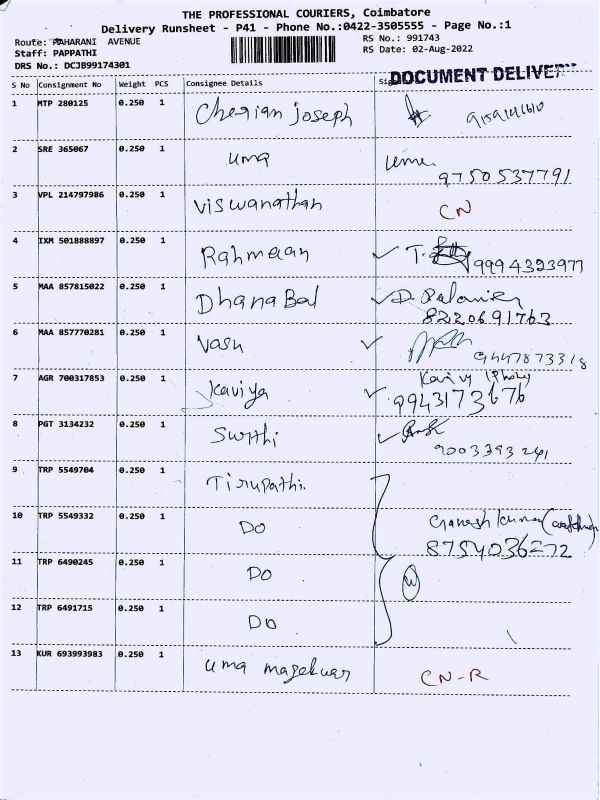 THE PROFESSIONAL COURIERS, Coimbatore
Delivery Runsheet - P41 - Phone No.:0422-3505555 - Page No.:1
Route: MAHARANI AVENUE
RS No.: 991743
Staff: PAPPATHI
RS Date: 02-Aug-2022
DRS No.: DCJB99174301
DOCUMENT DELIVERY
S No Consignment No Weight PCS Consignee Details
1 MTP 280125 0.250 1 Cherian Joseph
2 SRE 365067 0.250 1 Uma Uma
9750537791
3 VPL 214797986 0.250 1 Viswanathan CN
4 IXM 501888897 0.250 1 Rahmaan 9994323977
5 MAA 857815022 0.250 1 DhanaBal
8220691763
6 MAA 857770281 0.250 1 Vasu 9447873318
7 AGR 700317853 0.250 1 Kaviya
9943173676
8 PGT 3134232 0.250 1 Swathi
9003393241
9 TRP 5549704 0.250 1 Tirupathi
10 TRP 5549332 0.250 1 Do
8754036272
11 TRP 6490245 0.250 1 Do
12 TRP 6491715 0.250 1 Do
13 KUR 693993983 0.250 1 Uma CN-R